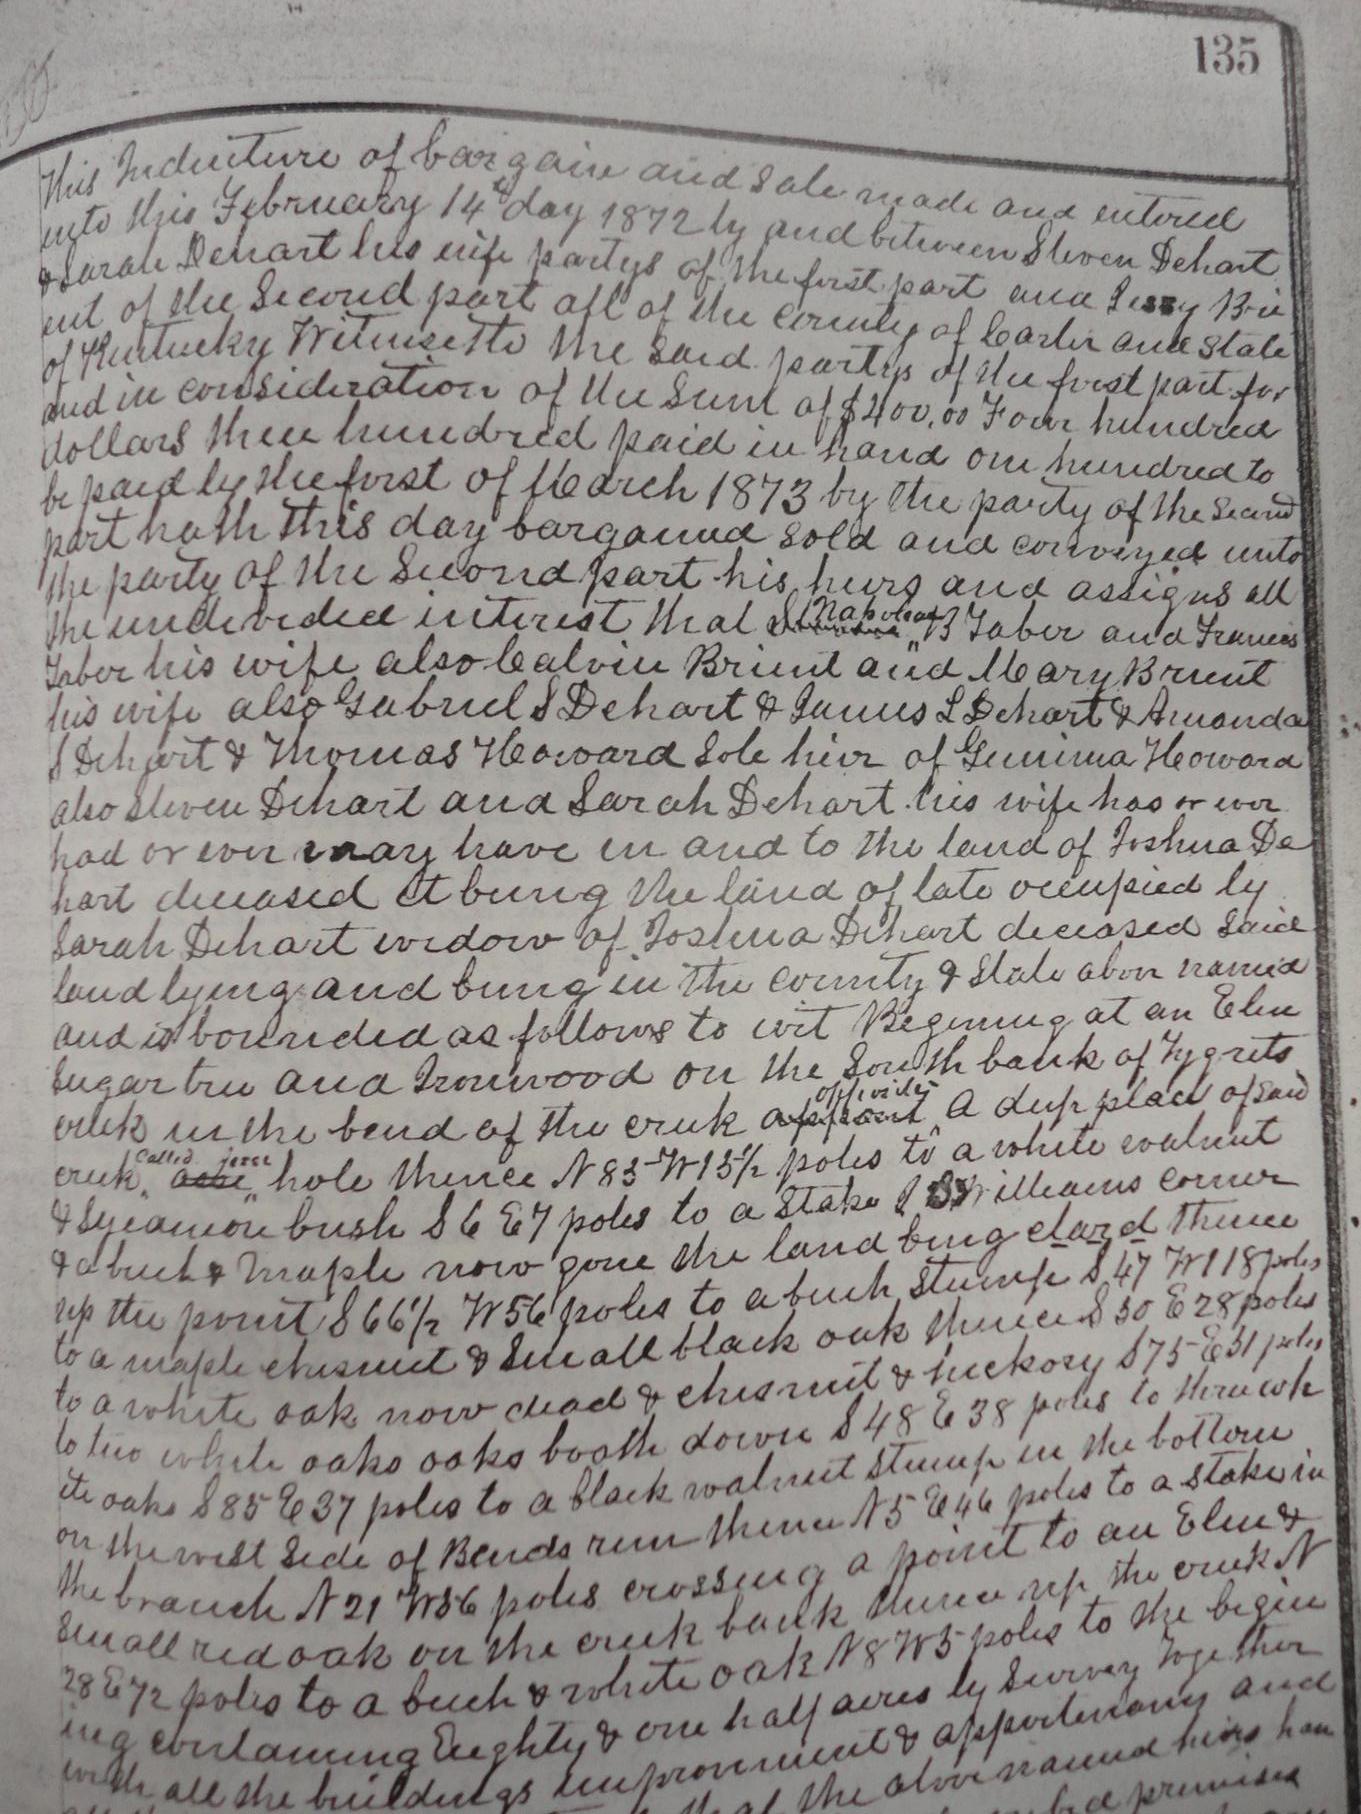 135
This Indenture of bargain and Sale made and entered
into this February 14th day 1872 by and between Steven Dehart
& Sarah Dehart his wife partys of the first part and Jessy Bri
ent of the Second part all of the county of Carter and State
of Kentucky Witnesseth the said partys of the first part for
and in consideration of the Sum of $400.00 Four hundred
dollars three hundred paid in hand one hundred to
be paid by the first of March 1873 by the party of the Second
part hath this day bargained sold and conveyed unto
the party of the Second part his heirs and assigns all
the undivided interest that Napolean B Taber and Francis
Taber his wife also Calvin Brient and Mary Brient
his wife also Gabriel S Dehart & James L Dehart & Amanda
S Dehart & Thomas Howard Sole heir of Gemima Howard
also Steven Dehart and Sarah Dehart his wife has or ever
had or ever may have in and to the land of Joshua De
hart deceased it being the land of late occupied by
Sarah Dehart widow of Joshua Dehart deceased Said
land lying and being in the county & State above named
and is bounded as follows to wit Begining at an Elm
Sugar tree and Ironwood on the South bank of Tygrets
creek in the bend of the creek opposite A deep place of said
creek called hole thence N 85 W 15½ poles to a white walnut
& Sycamore bush S 6 E 7 poles to a Stake Williams corner
& a buch & maple now gone the land being clard thence
up the point S 66½ W 56 poles to a buch stump S 47 W 118 poles
to a maple chesnut & Small black oak thence S 30 E 28 poles
to a white oak now dead & chesnut & hickory S 75 E 31 poles
to two white oaks oaks booth down S 48 E 38 poles to three wh
ite oaks S 85 E 37 poles to a black walnut stump in the bottom
on the west Side of Bends run thence N 5 E 46 poles to a stake in
the branch N 21 W 56 poles crossing a point to an Elm &
Small red oak on the creek bank thence up the creek N
28 E 72 poles to a buch & white oak N 8 W 5 poles to the begin
ing containing Eughty & one half acres by Survey Together
with all the buildings improvment & appertenany and
that of the above named heirs have
premises